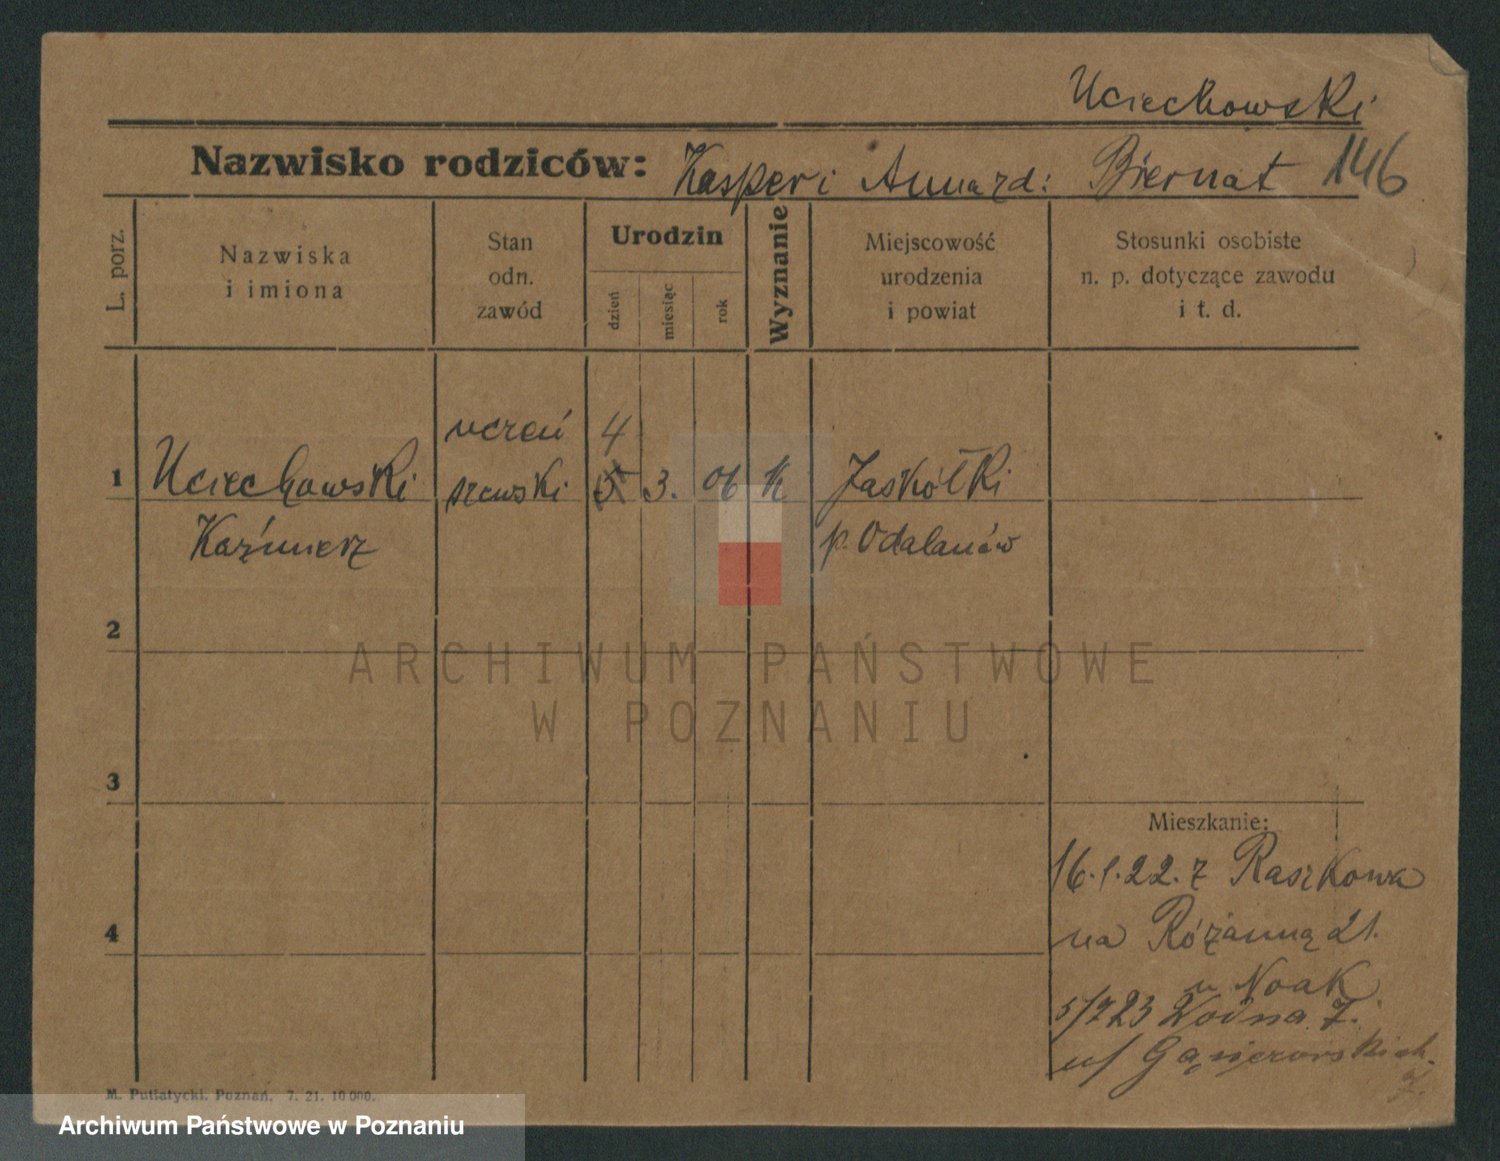 Uciechowski
Nazwisko rodziców: Kasper i Anna zd: Biernat 146
L. porz.
Nazwiska
i imiona
Stan
odn.
zawód
Urodzin
dzień
miesiąc
rok
Wyznanie
Miejscowość
urodzenia
i powiat
Stosunki osobiste
n. p. dotyczące zawodu
i t. d.
uczeń 4
1 Uciechowski szewski 5 3. 06 k Jaskółki
Kaźmierz p. Odalanów
2
ARCHIWUM PAŃSTWOWE
W POZNANIU
3
Mieszkanie:
16.1.22. z Raszkowa
4 na Różanną 21.
u Noak
5/7 23 Wodna 7.
u/ Gąsiorowskich
M. Putiatycki, Poznań. 7. 21. 10 000.
Archiwum Państwowe w Poznaniu